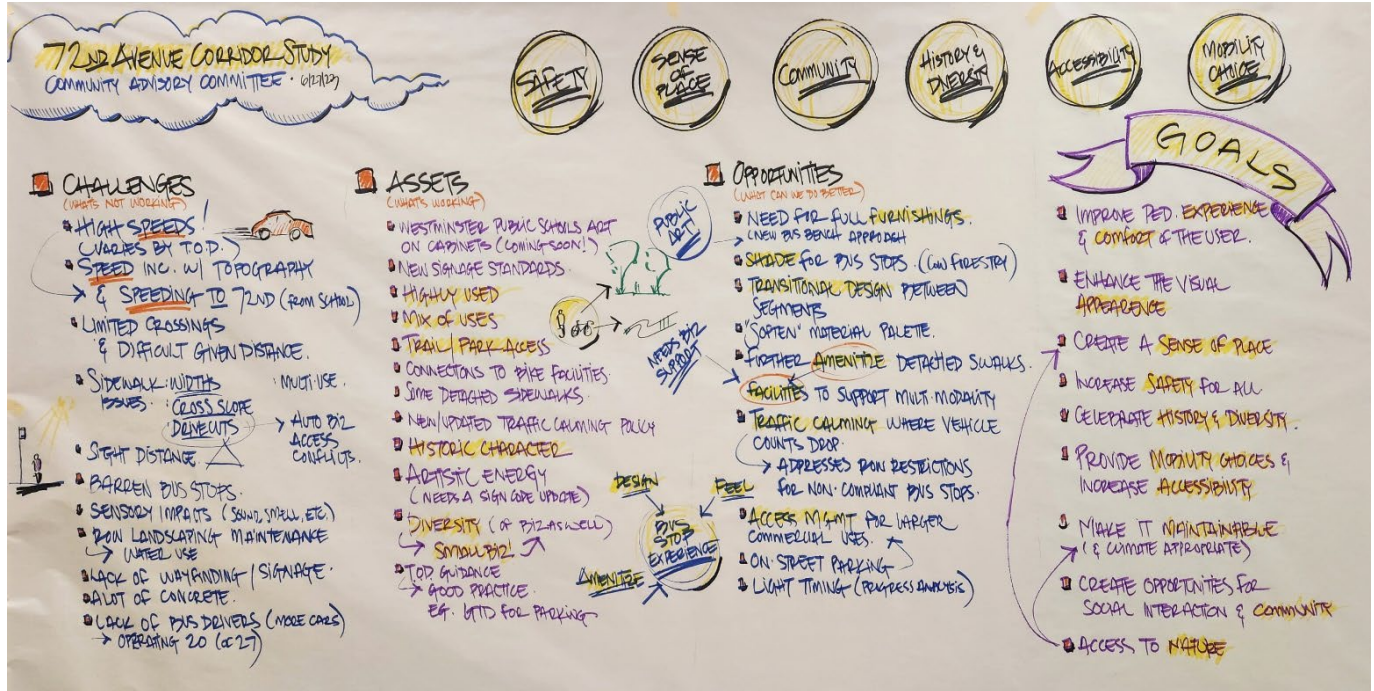 72ND AVENUE CORRIDOR STUDY
COMMUNITY ADVISORY COMMITTEE · 6/27/23
SAFETY
SENSE
OF
PLACE
COMMUNITY
HISTORY &
DIVERSITY
ACCESSIBILITY
MOBILITY
CHOICE
CHALLENGES
(WHAT'S NOT WORKING)
HIGH SPEEDS!
(VARIES BY T.O.D.)
SPEED INC. W/ TOPOGRAPHY
& SPEEDING TO 72ND (FROM SCHOOL)
LIMITED CROSSINGS
& DIFFICULT GIVEN DISTANCE.
SIDEWALK: WIDTHS : MULTI-USE.
ISSUES. : CROSS SLOPE
: DRIVE CUTS
AUTO BIZ
ACCESS
CONFLICTS.
SIGHT DISTANCE
BARREN BUS STOPS.
SENSORY IMPACTS (SOUND, SMELL, ETC.)
ROW LANDSCAPING MAINTENANCE
WATER USE
LACK OF WAYFINDING / SIGNAGE.
ALOT OF CONCRETE.
LACK OF BUS DRIVERS (MORE CARS)
OPERATING 20 (OF 27)
ASSETS
(WHAT'S WORKING)
WESTMINSTER PUBLIC SCHOOLS ART
ON CABINETS (COMING SOON!)
NEW SIGNAGE STANDARDS.
HIGHLY USED
MIX OF USES
TRAIL / PARK ACCESS
CONNECTIONS TO BIKE FACILITIES.
SOME DETACHED SIDEWALKS.
NEW/UPDATED TRAFFIC CALMING POLICY
HISTORIC CHARACTER
ARTISTIC ENERGY
(NEEDS A SIGN CODE UPDATE)
DIVERSITY (OF BIZ AS WELL)
SMALL BIZ!
TOD GUIDANCE
GOOD PRACTICE.
EG. GTID FOR PARKING
PUBLIC
ART
NEEDS BIZ
SUPPORT
DESIGN
FEEL
BUS
STOP
EXPERIENCE
AMENITIZE
OPPORTUNITIES
(WHAT CAN WE DO BETTER)
NEED FOR FULL FURNISHINGS.
(NEW BUS BENCH APPROACH
SHADE FOR BUS STOPS. (COW FORESTRY)
TRANSITIONAL DESIGN BETWEEN
SEGMENTS
"SOFTEN" MATERIAL PALETTE.
FURTHER AMENITIZE DETACHED SWALKS.
FACILITIES TO SUPPORT MULTI-MODALITY
TRAFFIC CALMING WHERE VEHICLE
COUNTS DROP.
ADDRESSES ROW RESTRICTIONS
FOR NON-COMPLIANT BUS STOPS.
ACCESS MGMT FOR LARGER
COMMERCIAL USES.
ON-STREET PARKING
LIGHT TIMING (PROGRESS ANALYSIS)
GOALS
IMPROVE PED. EXPERIENCE
& COMFORT OF THE USER.
ENHANCE THE VISUAL
APPEARENCE
CREATE A SENSE OF PLACE
INCREASE SAFETY FOR ALL
CELEBRATE HISTORY & DIVERSITY.
PROVIDE MOBILITY CHOICES &
INCREASE ACCESSIBILITY
MAKE IT MAINTAINABLE
(& CLIMATE APROPRIATE)
CREATE OPPORTUNITIES FOR
SOCIAL INTERACTION & COMMUNITY
ACCESS TO NATURE